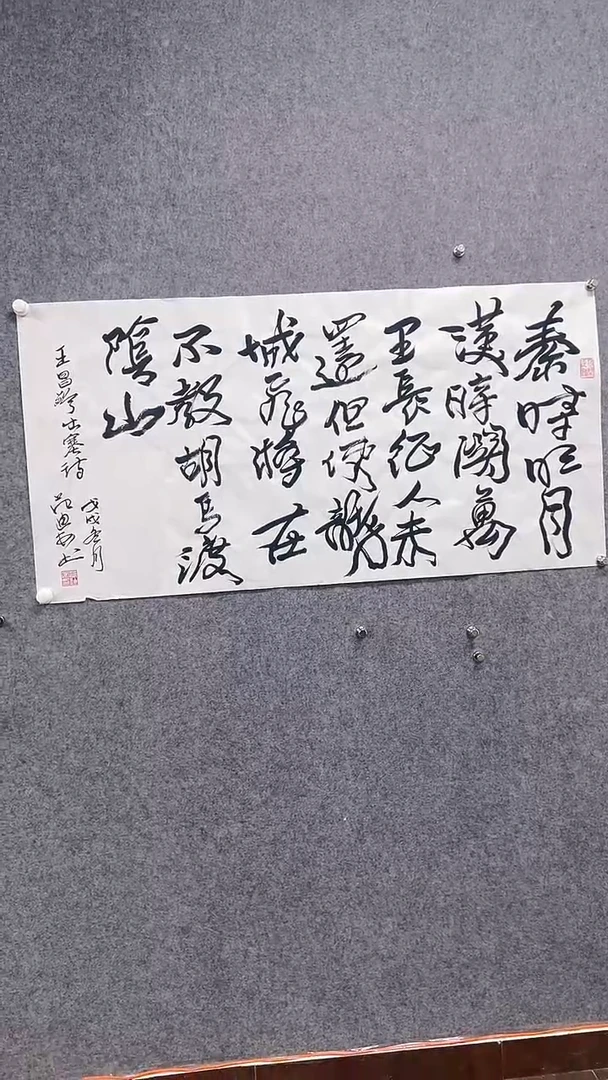 秦時明月
漢時關萬
里長征人未
還但使龍
城飛將在
不教胡馬渡
陰山
王昌齡出塞詩
戊戌月
书